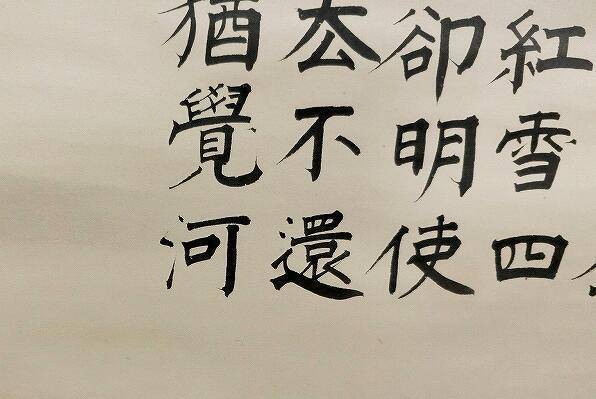 紅雪四
卻明使
厺不還
猶覺河